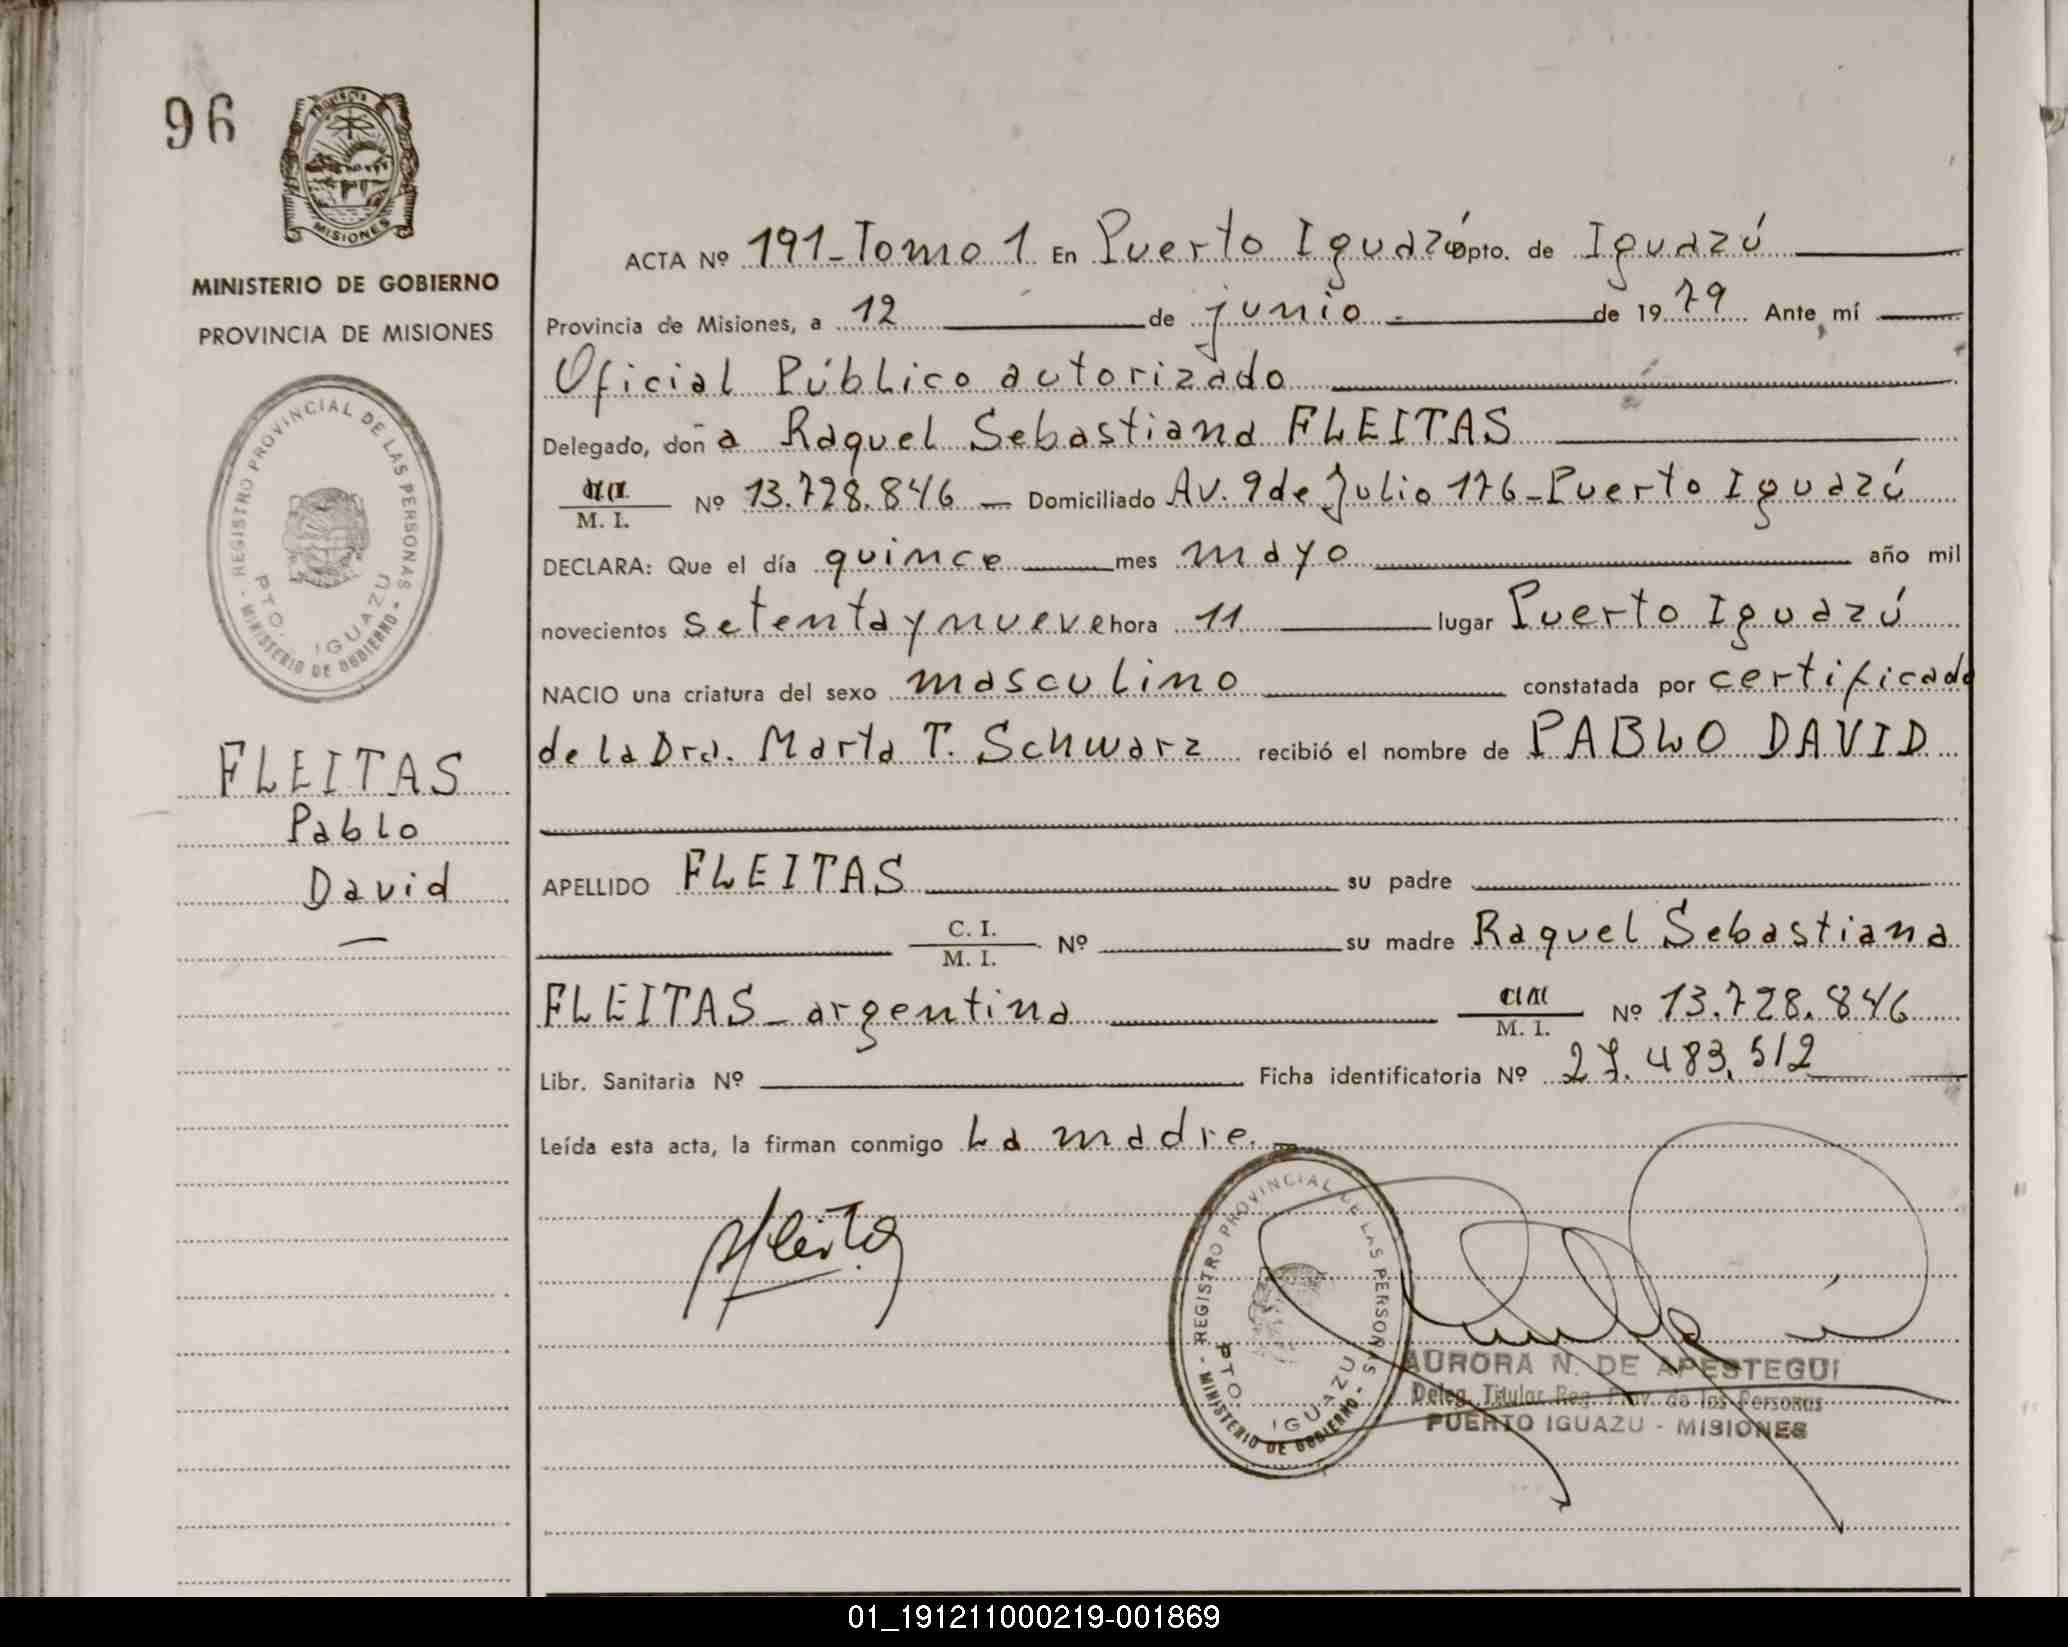 96
PROVINCIA
MISIONES
MINISTERIO DE GOBIERNO
PROVINCIA DE MISIONES
- REGISTRO PROVINCIAL DE LAS PERSONAS -
PTO. IGUAZU
MINISTERIO DE GOBIERNO
FLEITAS
Pablo
David
ACTA Nº 191-Tomo 1 En Puerto Iguazú Dpto. de Iguazú
Provincia de Misiones, a 12 de junio de 1979 Ante mí
Oficial Público autorizado
Delegado, doña Raquel Sebastiana FLEITAS
M. I. Nº 13.728.846 Domiciliado Av. 9 de Julio 176-Puerto Iguazú
DECLARA: Que el día quince mes mayo año mil
novecientos setenta y nueve hora 11 lugar Puerto Iguazú
NACIO una criatura del sexo masculino constatada por certificado
de la Dra. Marta T. Schwarz recibió el nombre de PABLO DAVID
APELLIDO FLEITAS su padre
C. I. M. I. Nº su madre Raquel Sebastiana
FLEITAS - argentina M. I. Nº 13.728.846
Libr. Sanitaria Nº Ficha identificatoria Nº 27.483.512
Leída esta acta, la firman conmigo La madre.
- REGISTRO PROVINCIAL DE LAS PERSONAS -
PTO. IGUAZU
MINISTERIO DE GOBIERNO
AURORA N. DE APESTEGUI
Deleg. Titular Reg. Prov. de las Personas
PUERTO IGUAZU - MISIONES
01_191211000219-001869